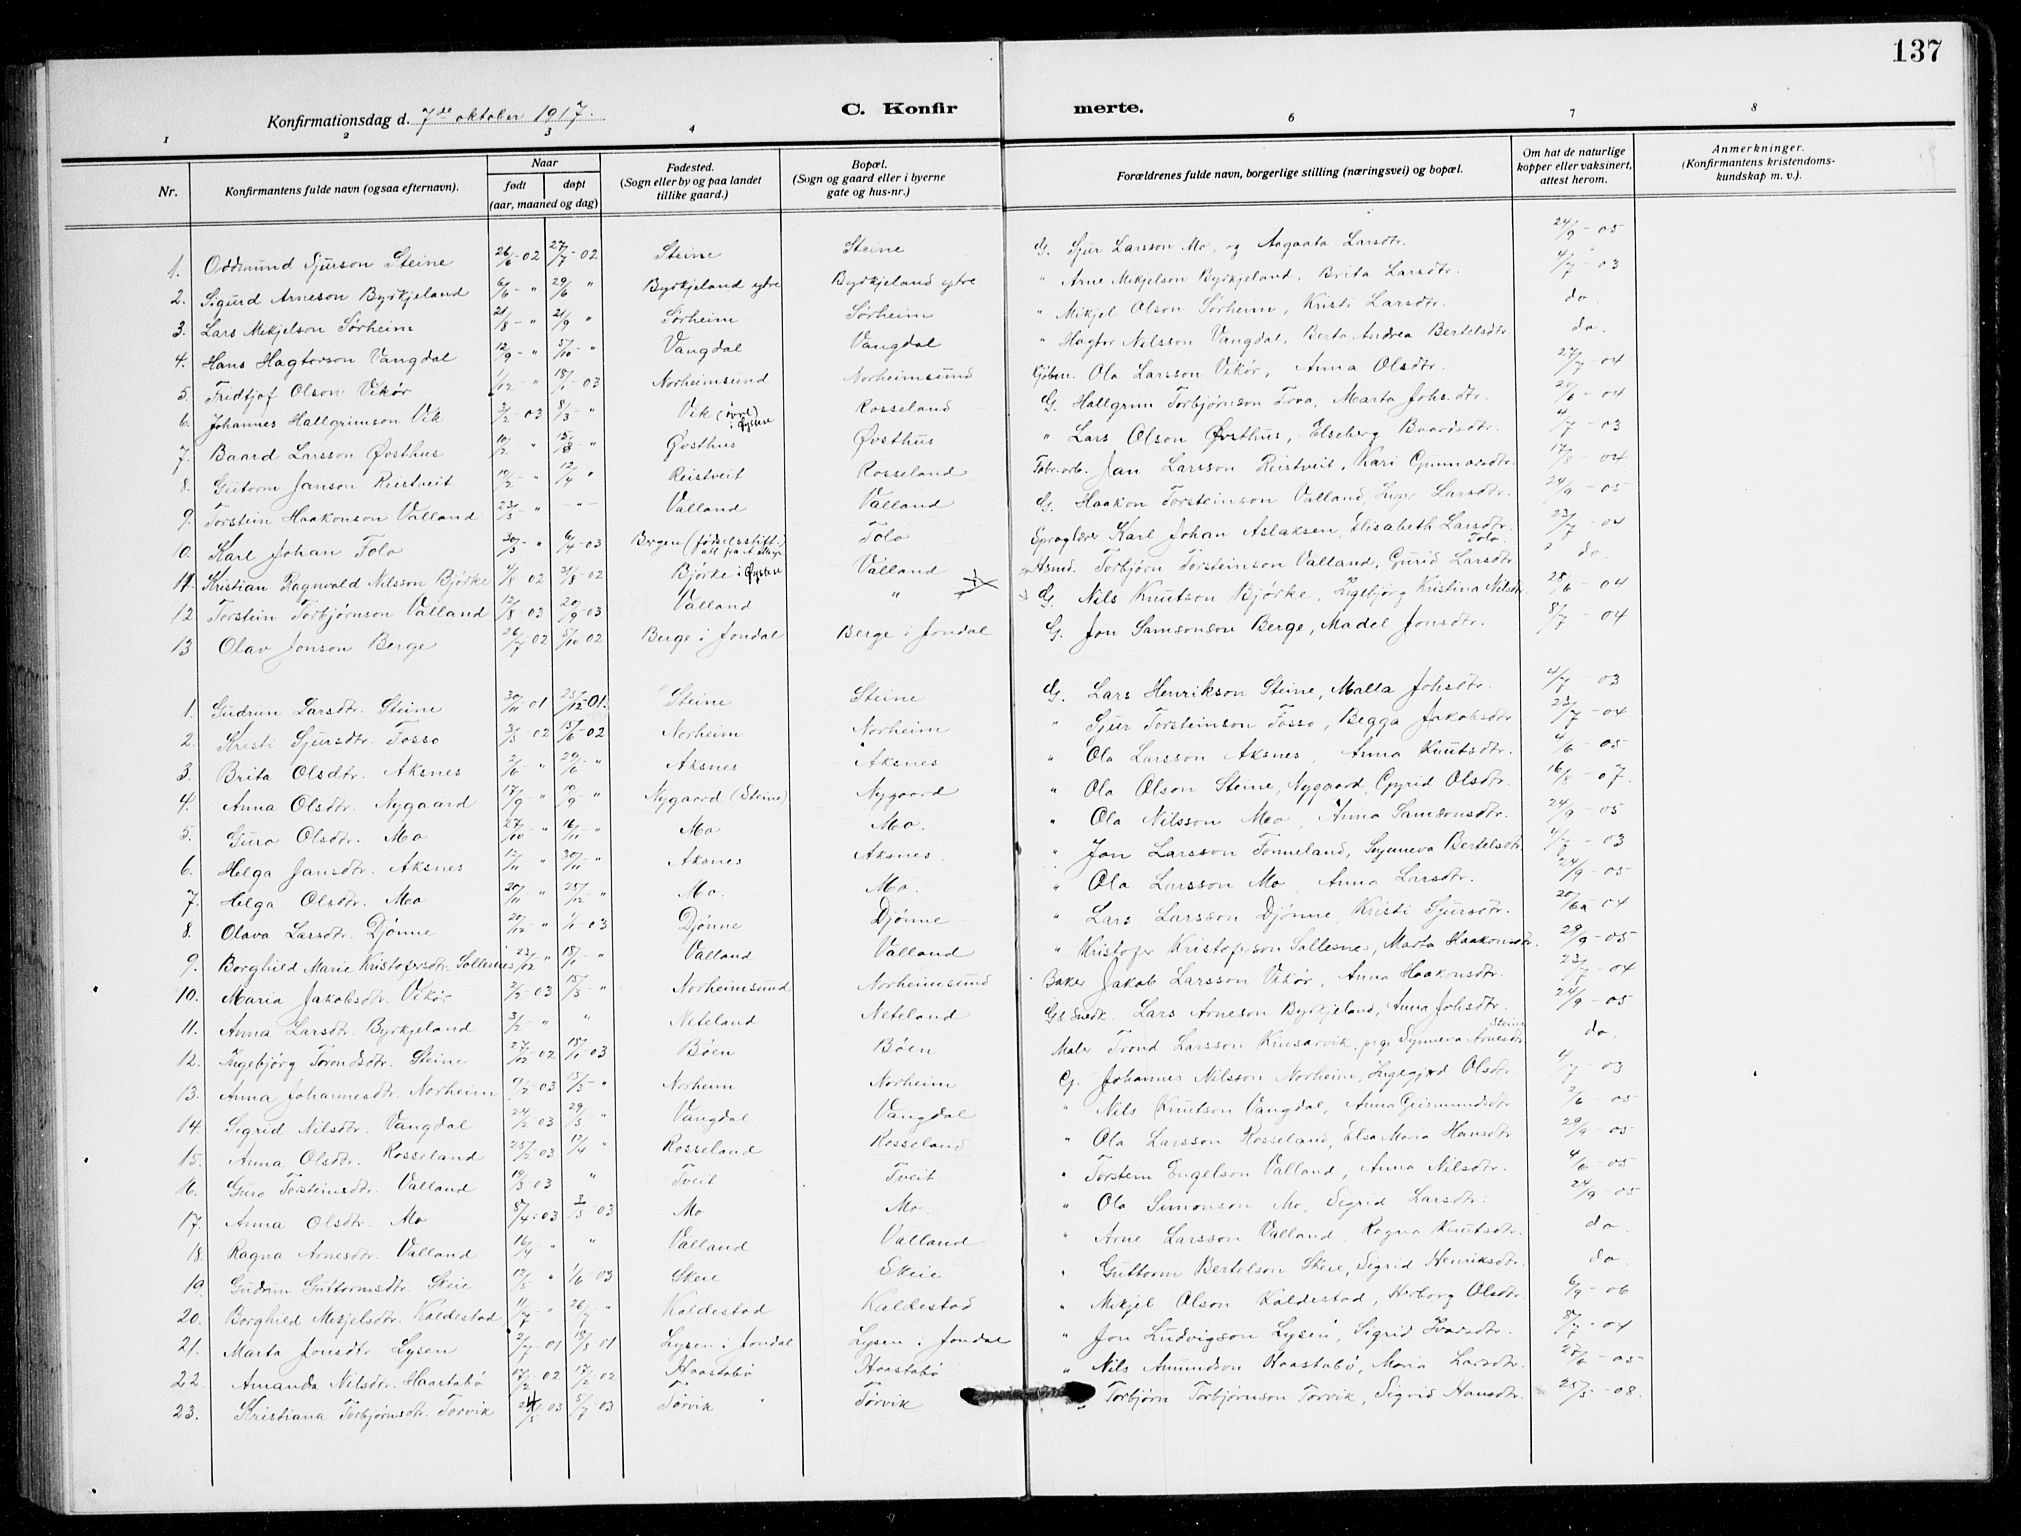 137
Konfirmationsdag d. 7de oktober 1917.
C. Konfir merte.
1 2 3 4 6 7 8
Nr. Konfirmantens fulde navn (ogsaa efternavn). Naar født døpt (aar, maaned og dag) Fødested. (Sogn eller by og paa landet tillike gaard.) Bopæl. (Sogn og gaard eller i byerne gate og hus-nr.) Forældrenes fulde navn, borgerlige stilling (næringsvei) og bopæl. Om hat de naturlige kopper eller vaksinert, attest herom. Anmerkninger. (Konfirmantens kristendomskundskap m. v.).
1. Oddmund Sjurson Steine 26/6-02 27/7-02 Steine Steine G. Sjur Larsson Mo og Aagaata Larsdtr. 24/9-05
2. Sigurd Arneson Byrkjeland 6/6-" 29/6 " Byrkjeland ytre Byrkjeland ytre " Arne Mikjelson Byrkjeland, Brita Larsdtr. 4/7-03
3. Lars Mikjelson Sørheim 21/8-" 21/9 " Sørheim Sørheim " Mikjel Olson Sørheim, Kristi Larsdtr. do.
4. Hans Hagtorson Vangdal 12/9-" 5/10-" Vangdal Vangdal " Hagtor Nilsson Vangdal, Berta Andrea Bertelsdtr. do.
5. Fridtjof Olson Vikør 1/12-" 18/1-03 Norheimsund Norheimsund Kjøbm. Ola Larsson Vikør, Anna Olsdtr. 27/7-04
6. Johannes Hallgrimson Vik 3/2-03 8/3-" Vik (øvre) i Øystese Rosseland G. Hallgrim Torbjørnson Troa, Marta Johs.dtr. 20/6-04
7. Baard Larsson Øvsthus 10/2-" 15/3-" Øvsthus Øvsthus " Lars Olson Øvsthus, Elseberg Baardsdtr. 4/7-03
8. Guttorm Janson Reistveit 19/2-" 12/4 " Reistveit Rosseland Fabr.arb. Jan Larsson Reistveit, Kari Gunnarsdtr. 17/8-04
9. Torstein Haakonson Valland 23/3 " -"- Valland Valland G. Haakon Torsteinson Valland, Inger Larsdtr. 24/9-05
10. Karl Johan Tolo 20/3-" 6/4-03 Bergen (fødselsstift.) Tolo Sproglærer Karl Johan Aslaksen, Elisabeth Larsdtr. Tolo 23/7-04
11. Kristian Ragnvald Nilsson Bjørke 7/8-02 31/8-02 Bjørke i Øystese Valland Torbjørn Torsteinson Valland, Gurid Larsdtr. do.
12 Torstein Torbjørnson Valland 12/8-03 20/9-03 Valland " G. Nils Knutson Bjørke, Ingebjørg Kristina Nilsdtr. 28/6-04
13 Olav Jonson Berge 26/7 02 5/10 02 Berge i Jondal Berge i Jondal G. Jon Samsonson Berge, Madel Jonsdtr. 8/7-04
1. Gudrun Larsdtr. Steine 30/11 01 25/12-01. Steine Steine G. Lars Henrikson Steine, Malla Johsdtr. 4/7-03
2. Kristi Sjursdtr. Fosso 3/5 02 15/6-02 Norheim Norheim " Sjur Torsteinson Fosso, Begga Jakobsdtr 23/7-04
3. Brita Olsdtr. Aksnes 2/6 " 29/6 " Aksnes Aksnes " Ola Larsson Aksnes, Anna Knutsdtr. 4/6-05
4. Anna Olsdtr. Nygaard 17/9 " 19/9-" Nygaard (Steine) Nygaard " Ola Olson Steine, Nygaard, Gyrid Olsdtr. 16/8-07.
5. Guro Olsdtr. Mo 27/10 " 16/11-" Mo Mo. " Ola Nilsson Mo, Anna Samsonsdtr. 24/9-05
6. Helga Jansdtr. Aksnes 12/11 " 30/11-" Aksnes Aksnes. " Jan Larsson Tonneland, Synneva Bertelsdtr. 4/7-03
7. Helga Olsdtr. Mo 20/11 " 25/12-" Mo. Mo. " Ola Larsson Mo, Anna Larsdtr. 24/9-05
8. Olava Larsdtr. Djønne 20/12-" 1/1-03 Djønne Djønne " Lars Larsson Djønne, Kristi Sjursdtr. 20/6-04
9. Borghild Marie Kristofersdtr. Sollesnes 23/12 " 18/1-" Valland Valland " Kristofer Kristoferson Sollesnes, Marta Haakonsdtr. 29/9-05
10. Maria Jakobsdtr. Vikør 3/2-03 15/3-" Norheimsund Norheimsund Baker Jakob Larsson Vikør, Anna Haakonsdtr. 23/7-04
11. Anna Larsdtr. Byrkjeland 3/2-" " Neteland Neteland G & Snedk. Lars Arneson Byrkjeland, Anna Johsdtr. 24/9-05
12. Ingebjørg Torondsdtr. Steine 27/12-02 18/1 03 Bøen Bøen Maler Trond Larsson Kinsarvik, p.g. Synneva Arnesdtr. Steine do
13. Anna Johannesdtr. Norheim 9/2-03 15/3-" Norheim Norheim G. Johannes Nilsson Norheim, Ingegjerd Olsdtr. 4/7-03
14. Sigrid Nilsdtr. Vangdal 24/2 03 29/3-" Vangdal Vangdal " Nils Knutson Vangdal, Anna Geirmundsdtr. 3/6-05
15. Anna Olsdtr. Rosseland 25/2-03 12/4 " Rosseland Rosseland " Ola Larsson Rosseland, Elsa Maria Hansdtr. 29/9-05
16. Guro Torsteinsdtr. Valland 19/3 03 " Tveit Tveit " Torstein Engelson Valland, Anna Nilsdtr. 4/6-05
17. Anna Olsdtr. Mo 8/4-03 3/5-03 Mo Mo. " Ola Simonson Mo, Sigrid Larsdtr. 24/9-05
18. Ragna Arnesdtr. Valland 16/4 " " Valland Valland " Arne Larsson Valland, Ragna Knutsdtr. do
19. Gudrun Guttormsdtr. Skeie 12/5 " 1/6-03 Skeie Skeie " Guttorm Bertelson Skeie, Sigrid Henriksdtr. do.
20. Borghild Mikjelsdtr. Kaldestad 11/7-" 26/7-" Kaldestad Kaldestad " Mikjel Olson Kaldestad, Herborg Olsdtr. 6/9-06
21. Marta Jonsdtr Lysen 2/7-01 18/8 01 Lysen i Jondal Lysen i Jondal " Jon Ludvigson Lysen, Sigrid Ivarsdtr. 8/7-04
22. Amanda Nilsdtr. Haastabø 17/2 02 17/2-02 Haastabø Haastabø " Nils Amundson Haastabø, Maria Larsdtr. 27/6-05
23. Kristiana Torbjørnsdtr. Torvik 24/5 03 5/7-03 Torvik Torvik " Torbjørn Torbjørnson Torvik, Sigrid Hansdtr. 25/5-08.